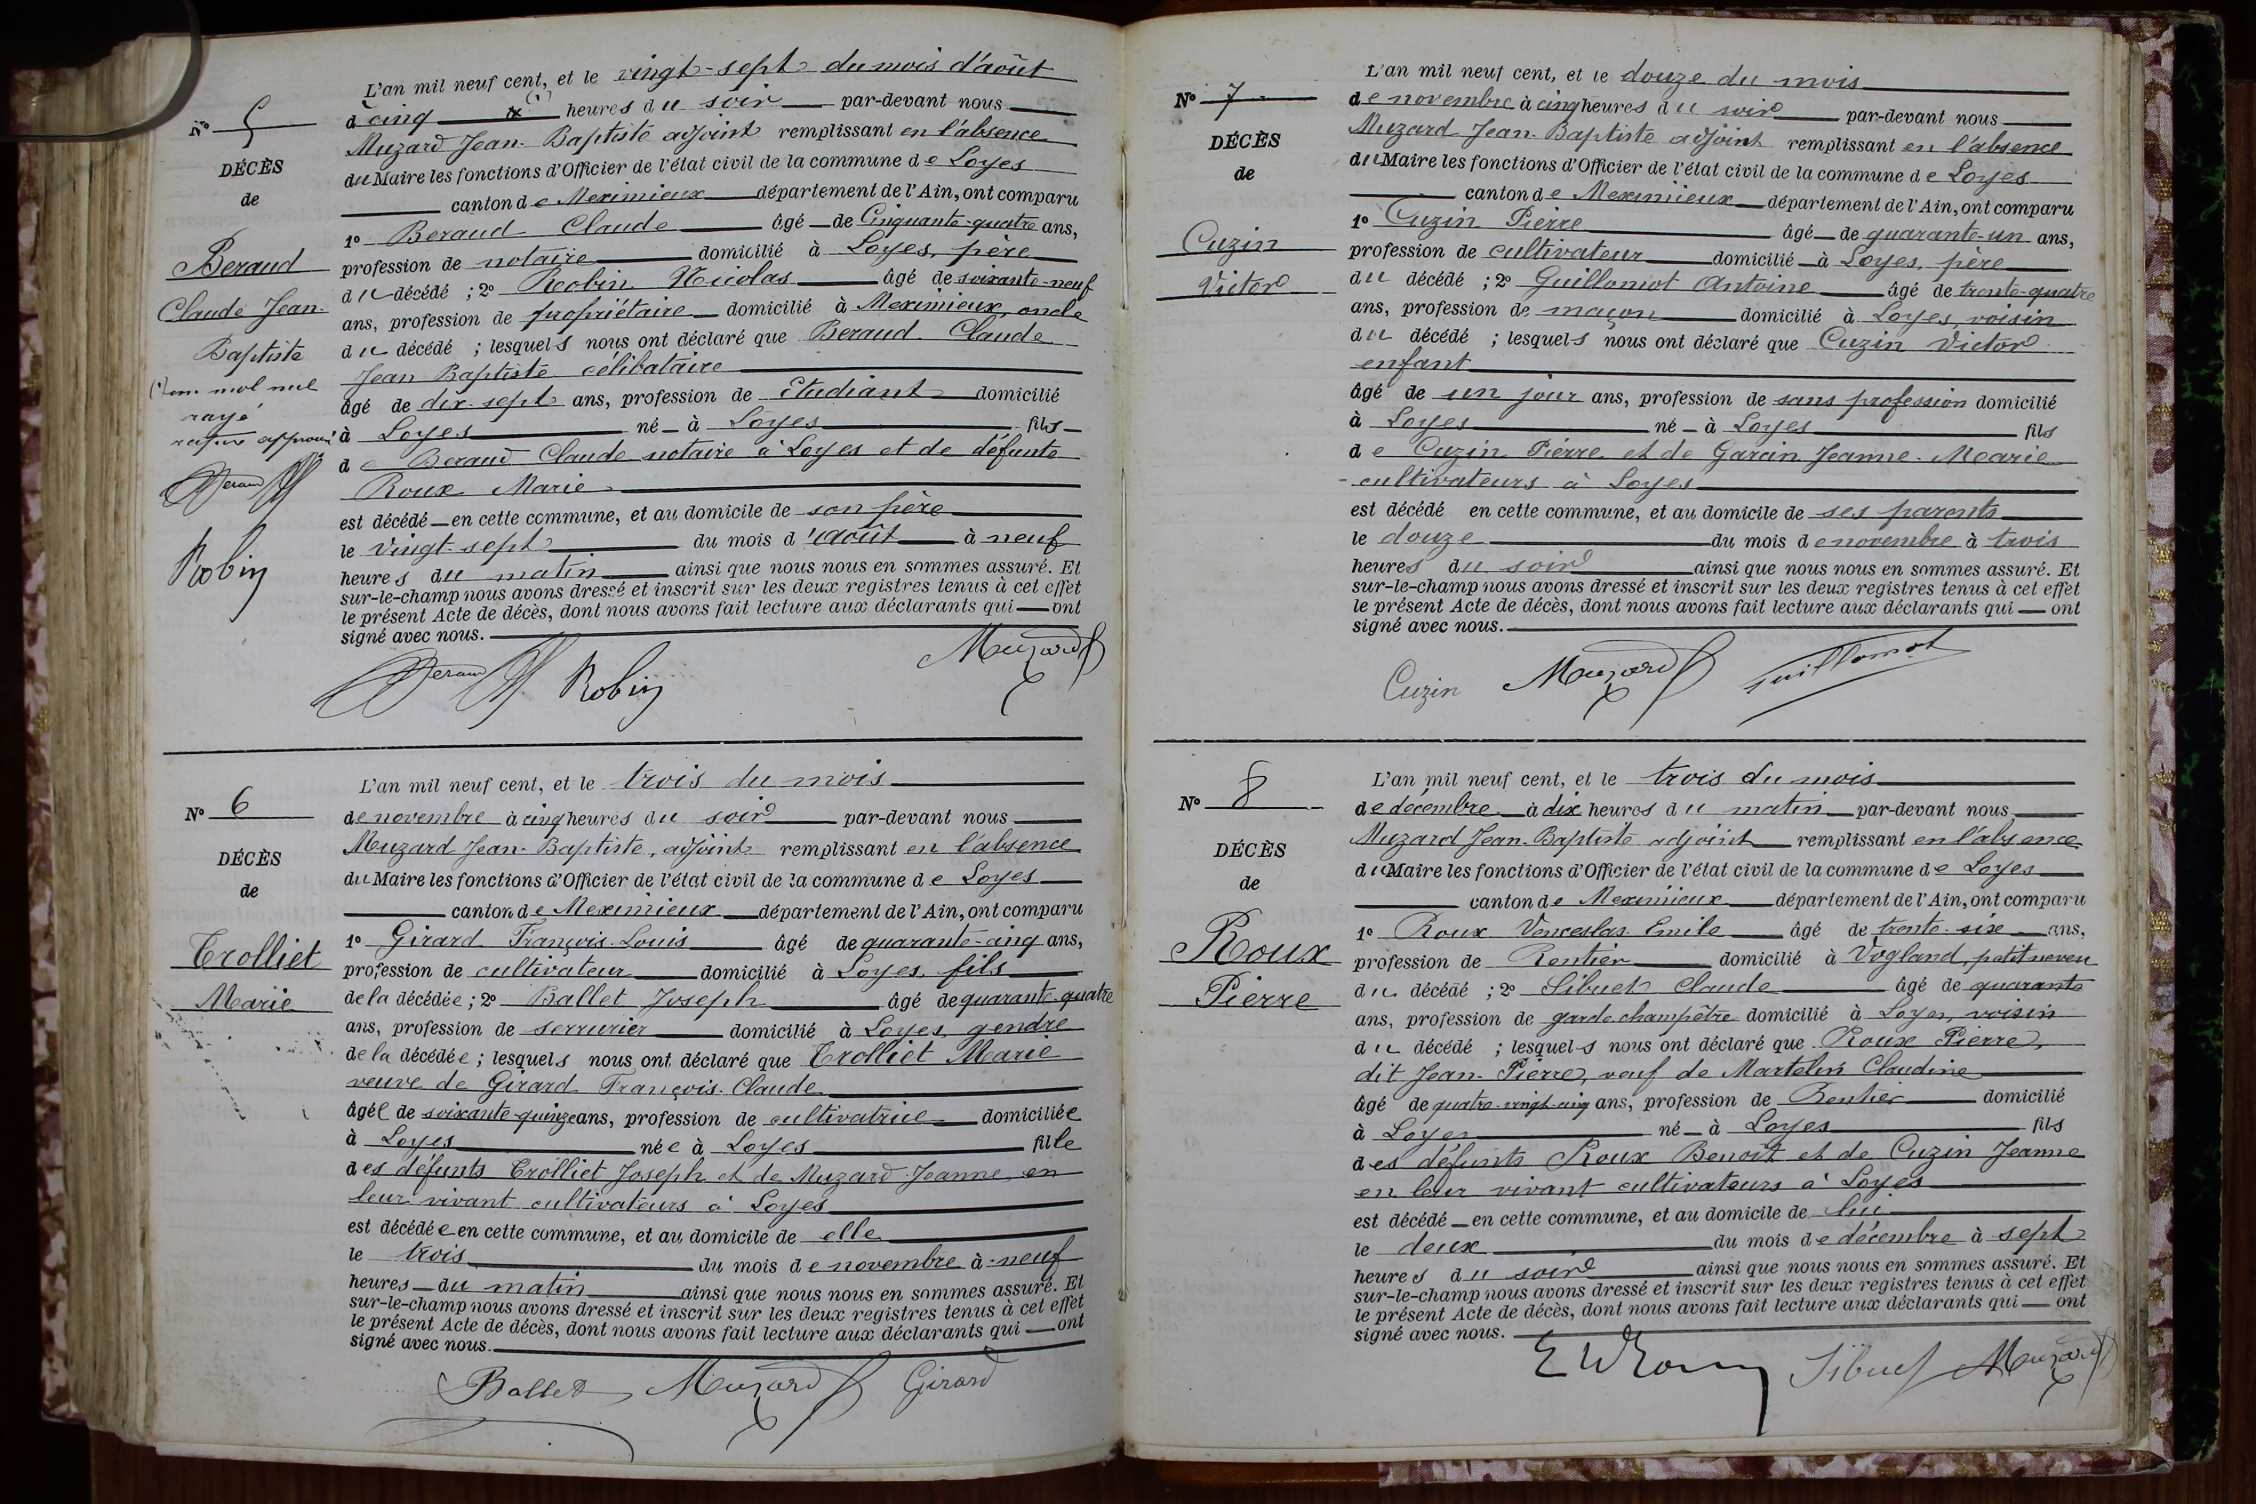 N° 5
DÉCÈS
de
Beraud
Claude Jean
Baptiste
(1) un mot nul
rayé
approuvé
Beraud
Robin
L'an mil neuf cent, et le vingt-sept du mois d'août
à cinq (1) heures du soir par-devant nous
Muzard Jean-Baptiste adjoint remplissant en l'absence
du Maire les fonctions d'Officier de l'état civil de la commune de Loyes
canton de Meximieux département de l'Ain, ont comparu
1° Beraud Claude âgé de Cinquante-quatre ans,
profession de notaire domicilié à Loyes, père
du décédé ; 2° Robin Nicolas âgé de soixante-neuf
ans, profession de propriétaire domicilié à Meximieux, oncle
du décédé ; lesquels nous ont déclaré que Beraud Claude
Jean Baptiste célibataire
âgé de dix-sept ans, profession de Etudiant domicilié
à Loyes né à Loyes fils
de Beraud Claude notaire à Loyes et de défunte
Roux Marie
est décédé en cette commune, et au domicile de son père
le vingt-sept du mois d'août à neuf
heures du matin ainsi que nous nous en sommes assuré. Et
sur-le-champ nous avons dressé et inscrit sur les deux registres tenus à cet effet
le présent Acte de décès, dont nous avons fait lecture aux déclarants qui ont
signé avec nous.
Beraud Robin Muzard
N° 6
DÉCÈS
de
Trolliet
Marie
L'an mil neuf cent, et le trois du mois
de novembre à cinq heures du soir par-devant nous
Muzard Jean-Baptiste, adjoint remplissant en l'absence
du Maire les fonctions d'Officier de l'état civil de la commune de Loyes
canton de Meximieux département de l'Ain, ont comparu
1° Girard François-Louis âgé de quarante-cinq ans,
profession de cultivateur domicilié à Loyes, fils
de la décédée ; 2° Ballet Joseph âgé de quarante-quatre
ans, profession de serrurier domicilié à Loyes, gendre
de la décédée ; lesquels nous ont déclaré que Trolliet Marie
veuve de Girard François-Claude
âgée de soixante-quinze ans, profession de cultivatrice domiciliée
à Loyes née à Loyes fille
des défunts Trolliet Joseph et de Muzard Jeanne, en
leur vivant cultivateurs à Loyes
est décédée en cette commune, et au domicile de elle
le trois du mois de novembre à neuf
heures du matin ainsi que nous nous en sommes assuré. Et
sur-le-champ nous avons dressé et inscrit sur les deux registres tenus à cet effet
le présent Acte de décès, dont nous avons fait lecture aux déclarants qui ont
signé avec nous.
Ballet Muzard Girard
N° 7
DÉCÈS
de
Cuzin
Victor
L'an mil neuf cent, et le douze du mois
de novembre à cinq heures du soir par-devant nous
Muzard Jean-Baptiste adjoint remplissant en l'absence
du Maire les fonctions d'Officier de l'état civil de la commune de Loyes
canton de Meximieux département de l'Ain, ont comparu
1° Cuzin Pierre âgé de quarante-un ans,
profession de cultivateur domicilié à Loyes, père
du décédé ; 2° Guillomot Antoine âgé de trente-quatre
ans, profession de maçon domicilié à Loyes, voisin
du décédé ; lesquels nous ont déclaré que Cuzin Victor
enfant
âgé de un jour ans, profession de sans profession domicilié
à Loyes né à Loyes fils
de Cuzin Pierre et de Garcin Jeanne-Marie
cultivateurs à Loyes
est décédé en cette commune, et au domicile de ses parents
le douze du mois de novembre à trois
heures du soir ainsi que nous nous en sommes assuré. Et
sur-le-champ nous avons dressé et inscrit sur les deux registres tenus à cet effet
le présent Acte de décès, dont nous avons fait lecture aux déclarants qui ont
signé avec nous.
Cuzin Muzard Guillomot
N° 8
DÉCÈS
de
Roux
Pierre
L'an mil neuf cent, et le trois du mois
de décembre à dix heures du matin par-devant nous
Muzard Jean-Baptiste adjoint remplissant en l'absence
du Maire les fonctions d'Officier de l'état civil de la commune de Loyes
canton de Meximieux département de l'Ain, ont comparu
1° Roux Venceslas Emile âgé de trente-six ans,
profession de Rentier domicilié à Vogland, petit neveu
du décédé ; 2° Sibuet Claude âgé de quarante
ans, profession de garde champêtre domicilié à Loyes, voisin
du décédé ; lesquels nous ont déclaré que Roux Pierre,
dit Jean-Pierre, veuf de Martelin Claudine
âgé de quatre-vingt-cinq ans, profession de Rentier domicilié
à Loyes né à Loyes fils
des défunts Roux Benoît et de Cuzin Jeanne
en leur vivant cultivateurs à Loyes
est décédé en cette commune, et au domicile de lui
le deux du mois de décembre à sept
heures du soir ainsi que nous nous en sommes assuré. Et
sur-le-champ nous avons dressé et inscrit sur les deux registres tenus à cet effet
le présent Acte de décès, dont nous avons fait lecture aux déclarants qui ont
signé avec nous.
Sibuet Muzard